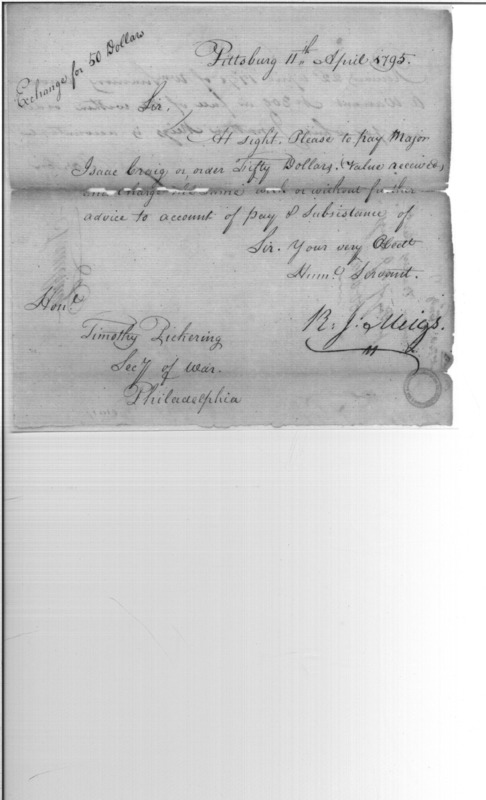 Exchange for 50 Dollars
Pittsburg 11th April 1795.
Sir.
At sight, Please to pay Major
Isaac Craig or order Fifty Dollars. Value received,
and charge the same with or without further
advice to account of pay & Subsistance of
Sir. Your very Obedt
Humd Servant.
R. J. Meigs.
Honle
Timothy Pickering
Secy of War.
Philadelphia